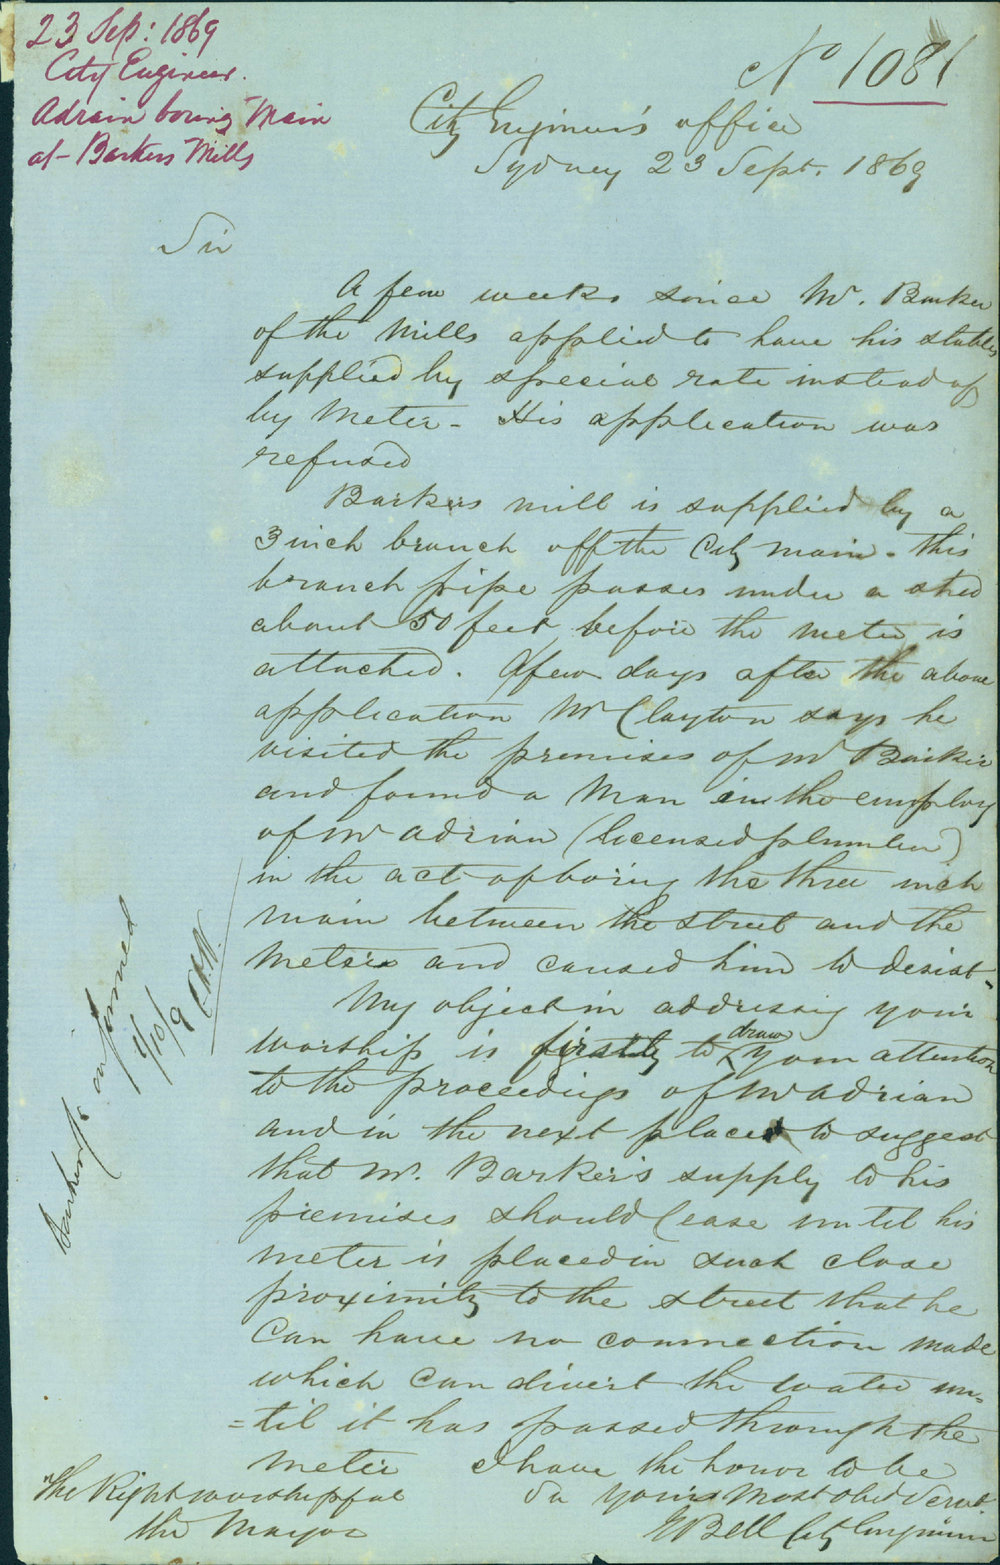 23 Sep: 1869
City Engineer.
Adrain boring Main
at Barkers Mills
No 1081
City Engineer's office
Sydney 23 Sept. 1869
Sir
A few weeks since Mr. Barker
of the Mills applied to have his stables
supplied by special rate instead of
by Meter - His application was
refused
Barkers mill is supplied by a
3 inch branch off the City main - this
branch pipe passes under a shed
about 50 feet before the meter is
attached. A few days after the above
application Mr Clayton says he
visited the premises of Mr Barker
and found a Man in the employ
of Mr Adrian (licensed plumber)
in the act of boring the three inch
main between the street and the
Meter and caused him to desist.
My object in addressing your
worship is firstly to draw your attention
to the proceedings of Mr Adrian
and in the next place to suggest
that Mr. Barker's supply to his
premises should cease until his
meter is placed in such close
proximity to the street that he
Can have no connection made
which can divert the water un=
=til it has passed through the
meter I have the honor to be
Sir Your Most Obed Servt.
The Right worshipful
the Mayor
E Bell City Engineer
informed
1/10/9